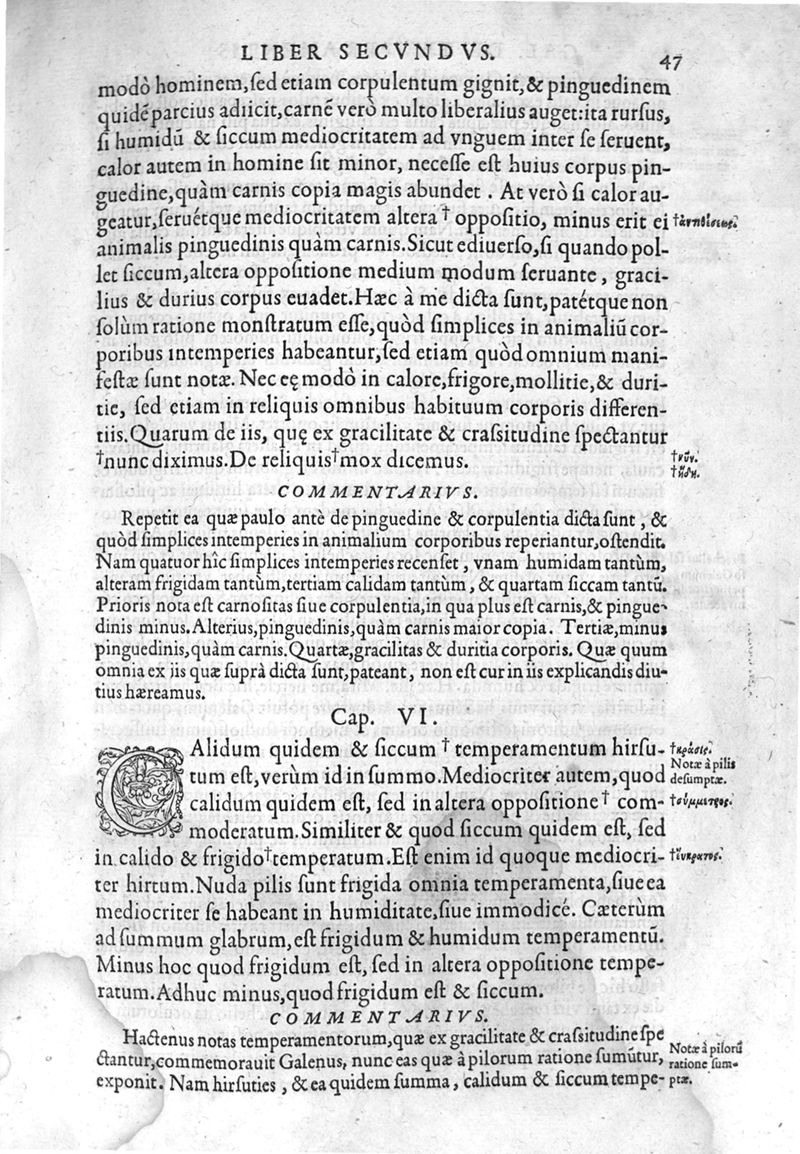 LIBER SECVNDVS.
47
modò hominem, sed etiam corpulentum gignit, & pinguedinem
quidẽ parcius adiicit, carnẽ verò multo liberalius auget: ita rursus,
si humidũ & siccum mediocritatem ad vnguem inter se seruent,
calor autem in homine sit minor, necesse est huius corpus pin-
guedine, quàm carnis copia magis abundet. At verò si calor au-
geatur, seruétque mediocritatem altera † oppositio, minus erit ei
animalis pinguedinis quàm carnis. Sicut ediuerso, si quando pol-
let siccum, altera oppositione medium modum seruante, graci-
lius & durius corpus euadet. Hæc à me dicta sunt, patétque non
solùm ratione monstratum esse, quòd simplices in animaliũ cor-
poribus intemperies habeantur, sed etiam quòd omnium mani-
festæ sunt notæ. Nec eę modò in calore, frigore, mollitie, & duri-
tie, sed etiam in reliquis omnibus habituum corporis differen-
tiis. Quarum de iis, quę ex gracilitate & crassitudine spectantur
†nunc diximus. De reliquis †mox dicemus.
†νῦν.
†ἤδη.
COMMENTARIVS.
Repetit ea quæ paulo antè de pinguedine & corpulentia dicta sunt, &
quòd simplices intemperies in animalium corporibus reperiantur, ostendit.
Nam quatuor hîc simplices intemperies recenset, vnam humidam tantùm,
alteram frigidam tantùm, tertiam calidam tantùm, & quartam siccam tantũ.
Prioris nota est carnositas siue corpulentia, in qua plus est carnis, & pingue-
dinis minus. Alterius, pinguedinis, quàm carnis maior copia. Tertiæ, minus
pinguedinis, quàm carnis. Quartæ, gracilitas & duritia corporis. Quæ quum
omnia ex iis quæ suprà dicta sunt, pateant, non est cur in iis explicandis diu-
tius hæreamus.
Cap. VI.
CAlidum quidem & siccum † temperamentum hirsu-
tum est, verùm id in summo. Mediocriter autem, quod
calidum quidem est, sed in altera oppositione † com-
moderatum. Similiter & quod siccum quidem est, sed
in calido & frigido †temperatum. Est enim id quoque mediocri-
ter hirtum. Nuda pilis sunt frigida omnia temperamenta, siue ea
mediocriter se habeant in humiditate, siue immodicé. Cæterùm
ad summum glabrum, est frigidum & humidum temperamentũ.
Minus hoc quod frigidum est, sed in altera oppositione tempe-
ratum. Adhuc minus, quod frigidum est & siccum.
†κρᾶσις.
Notæ à pilis
desumptæ.
†σύμμετρος.
†εὔκρατος.
COMMENTARIVS.
Hactenus notas temperamentorum, quæ ex gracilitate & crassitudine spe
ctantur, commemorauit Galenus, nunc eas quæ à pilorum ratione sumũtur,
exponit. Nam hirsuties, & ea quidem summa, calidum & siccum tempe-
Notæ à pilorũ
ratione sum-
ptæ.